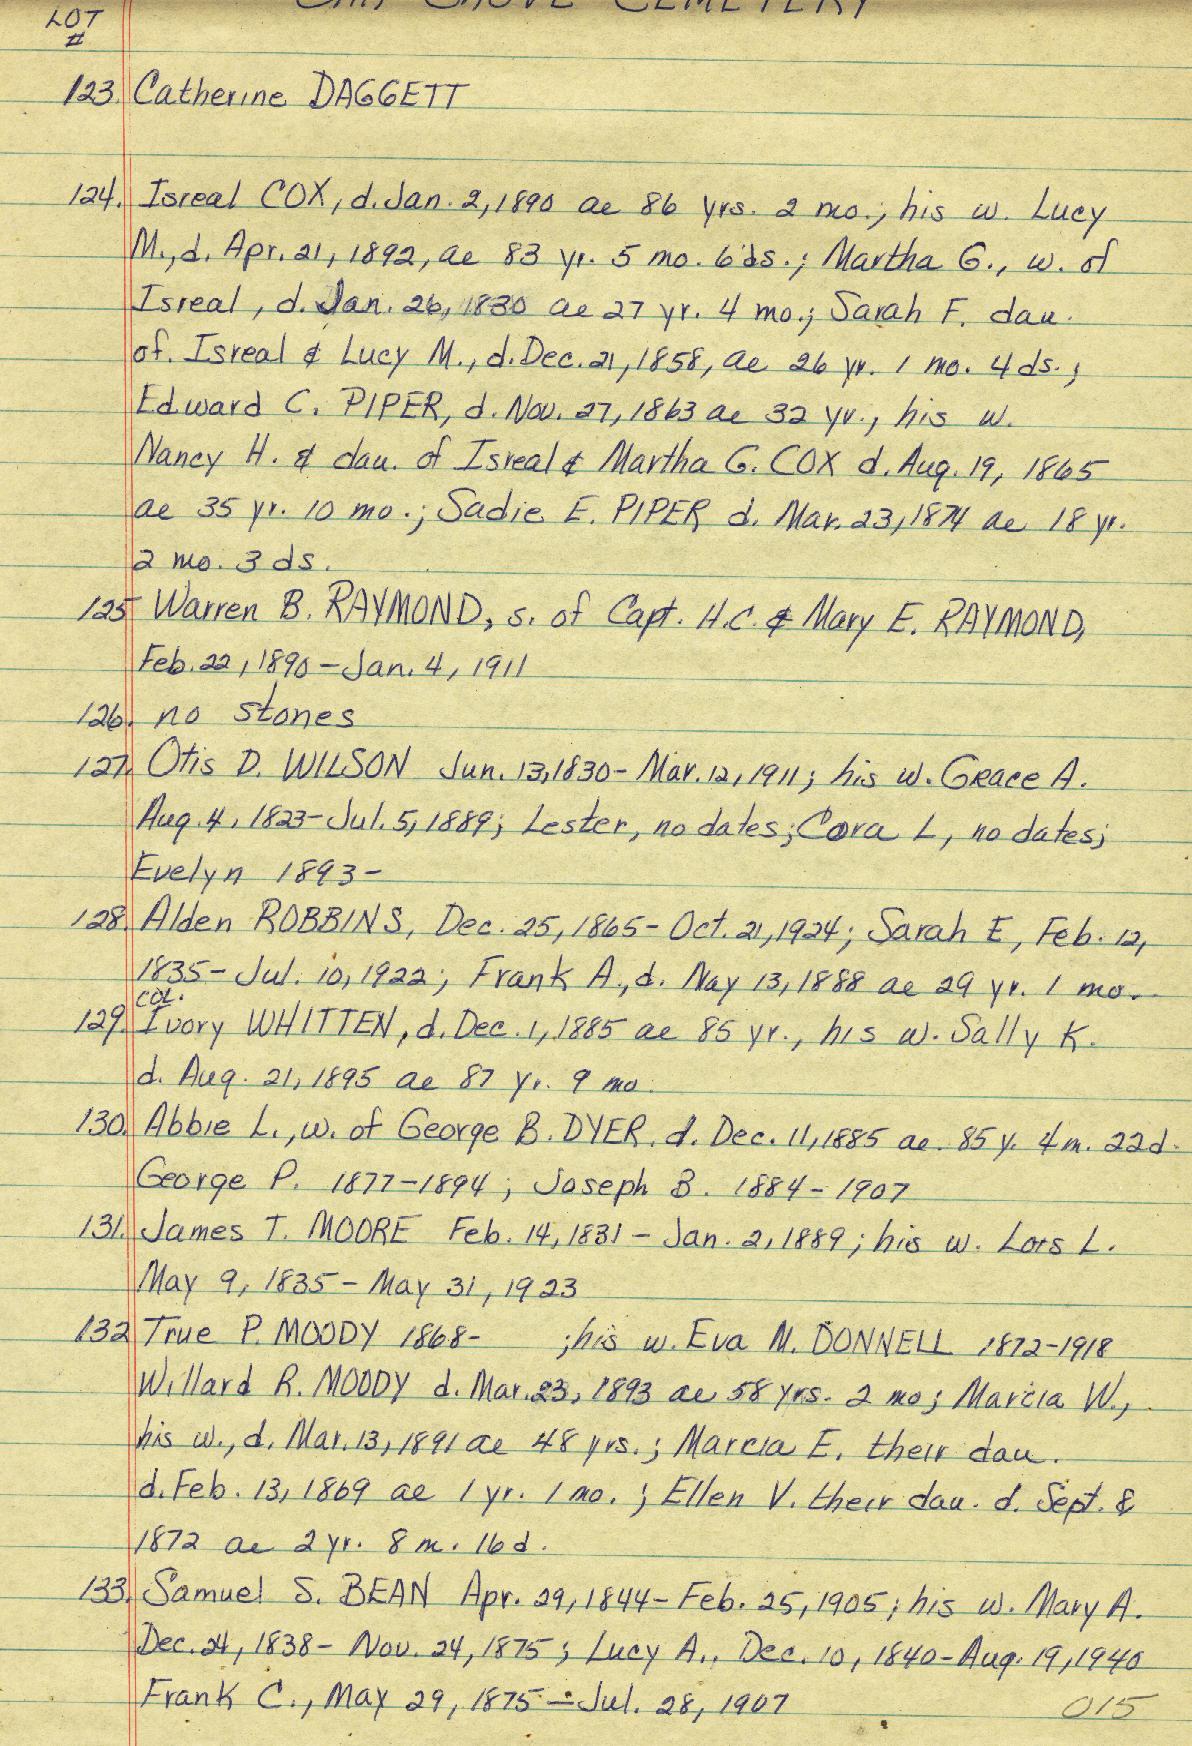 CEMETERY
LOT
#
123. Catherine DAGGETT
124. Isreal COX, d. Jan. 2, 1890 ae 86 yrs. 2 mo.; his w. Lucy
M., d. Apr. 21, 1892, ae 83 yr. 5 mo. 6 ds.; Martha G., w. of
Isreal, d. Jan. 26, 1830 ae 27 yr. 4 mo.; Sarah F. dau.
of. Isreal & Lucy M., d. Dec. 21, 1858, ae 26 yr. 1 mo. 4 ds.;
Edward C. PIPER, d. Nov. 27, 1863 ae 32 yr., his w.
Nancy H. & dau. of Isreal & Martha G. COX d. Aug. 19, 1865
ae 35 yr. 10 mo.; Sadie E. PIPER d. Mar. 23, 1874 ae 18 yr.
2 mo. 3 ds.
125 Warren B. RAYMOND, s. of Capt. H.C. & Mary E. RAYMOND,
Feb. 22, 1890 - Jan. 4, 1911
126. no stones
127. Otis D. WILSON Jun. 13, 1830 - Mar. 12, 1911; his w. Grace A.
Aug. 4, 1823 - Jul. 5, 1889; Lester, no dates; Cora L, no dates;
Evelyn 1893 -
128. Alden ROBBINS, Dec. 25, 1865 - Oct. 21, 1924; Sarah E, Feb. 12,
1835 - Jul. 10, 1922; Frank A., d. May 13, 1888 ae 29 yr. 1 mo.
COL.
129. Ivory WHITTEN, d. Dec. 1, 1885 ae 85 yr., his w. Sally K.
d. Aug. 21, 1895 ae 87 yr. 9 mo.
130. Abbie L., w. of George B. DYER d. Dec. 11, 1885 ae. 85 y. 4 m. 22 d.
George P. 1877 - 1894; Joseph B. 1884 - 1907
131. James T. MOORE Feb. 14, 1831 - Jan. 2, 1889; his w. Lois L.
May 9, 1835 - May 31, 1923
132 True P. MOODY 1868 - ; his w. Eva M. DONNELL 1872-1918
Willard R. MOODY d. Mar. 23, 1893 ae 58 yrs. 2 mo; Marcia W.,
his w., d. Mar. 13, 1891 ae 48 yrs.; Marcia E. their dau.
d. Feb. 13, 1869 ae 1 yr. 1 mo.; Ellen V. their dau. d. Sept. 8
1872 ae 2 yr. 8 m. 16 d.
133. Samuel S. BEAN Apr. 29, 1844 - Feb. 25, 1905; his w. Mary A.
Dec. 24, 1838 - Nov. 24, 1875; Lucy A., Dec. 10, 1840 - Aug. 19, 1940
Frank C., May 29, 1875 - Jul. 28, 1907
015